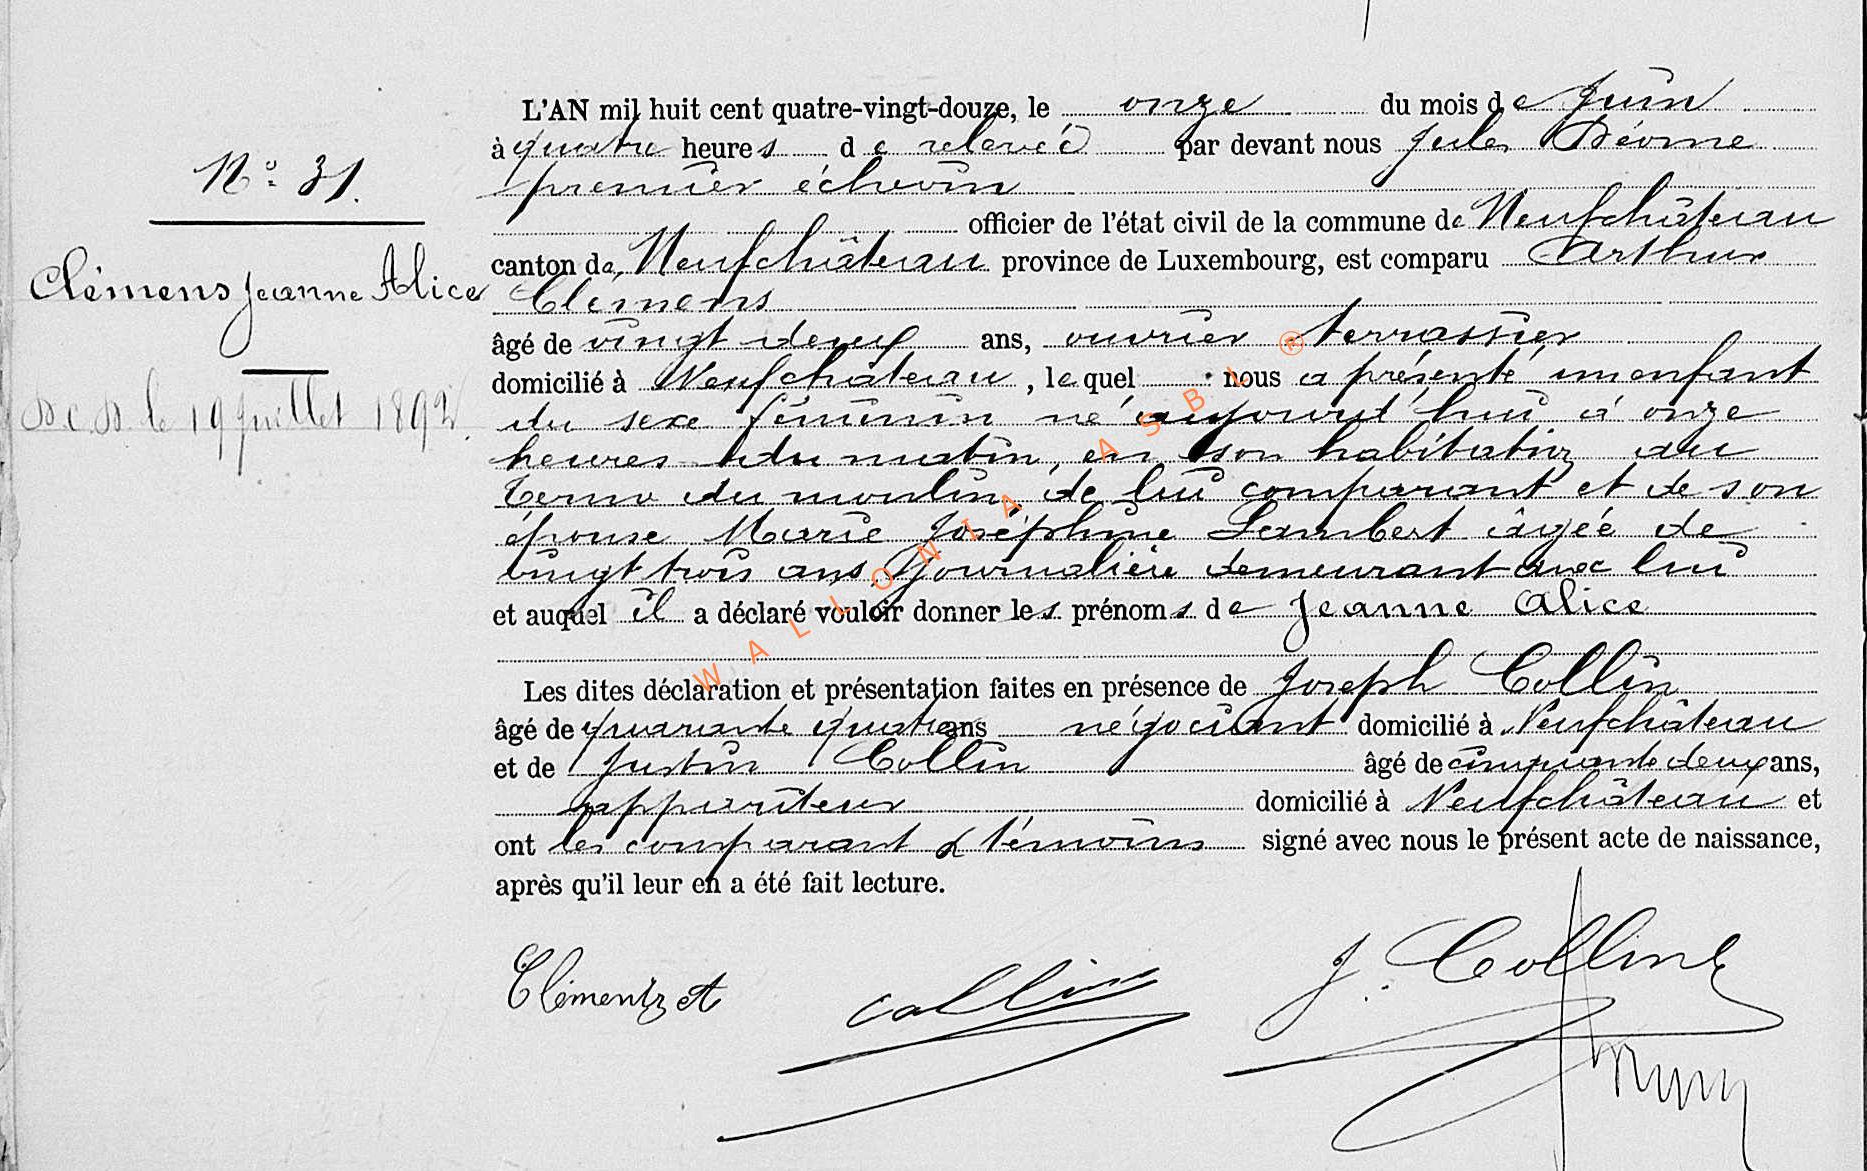 N° 31.
Clémens Jeanne Alice
D.c.d. le 19 juillet 1892.
L'AN mil huit cent quatre-vingt-douze, le onze du mois de Juin
à quatre heures de relevée par devant nous Jules
premier échevin
officier de l'état civil de la commune de Neufchâteau
canton de Neufchâteau province de Luxembourg, est comparu Arthur
Clémens
âgé de vingt deux ans, ouvrier terrassier
domicilié à Neufchâteau, lequel nous a présenté un enfant
du sexe féminin né aujourd'hui à onze
heures du matin, en son habitation au
Terme du moulin, de lui comparant et de son
épouse Marie Joséphine Lambert âgée de
vingt trois ans, journalière demeurant avec lui
et auquel il a déclaré vouloir donner les prénoms de Jeanne Alice
Les dites déclaration et présentation faites en présence de Joseph Collin
âgé de quarante quatre ans négociant domicilié à Neufchâteau
et de Justin Collin âgé de cinquante deux ans,
appariteur domicilié à Neufchâteau et
ont les comparant & témoins signé avec nous le présent acte de naissance,
après qu'il leur en a été fait lecture.
Clémentz A
Collin
J. Collin
WALLONIA ASBL ®